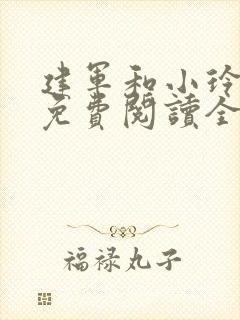 建军和小玲
免費閱讀全
福禄丸子